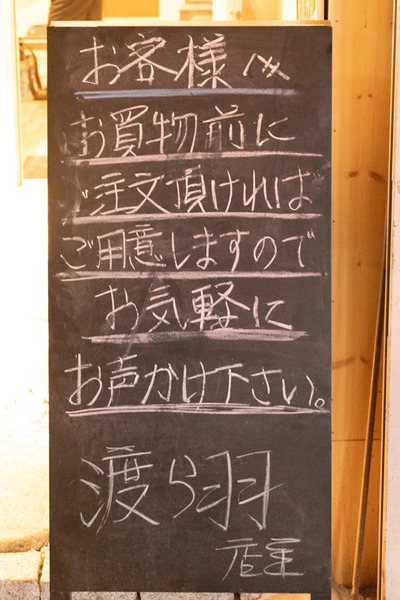 お客様へ
お買物前に
ご注文頂ければ
ご用意しますので
お気軽に
お声かけ下さい。
渡ら羽
店主